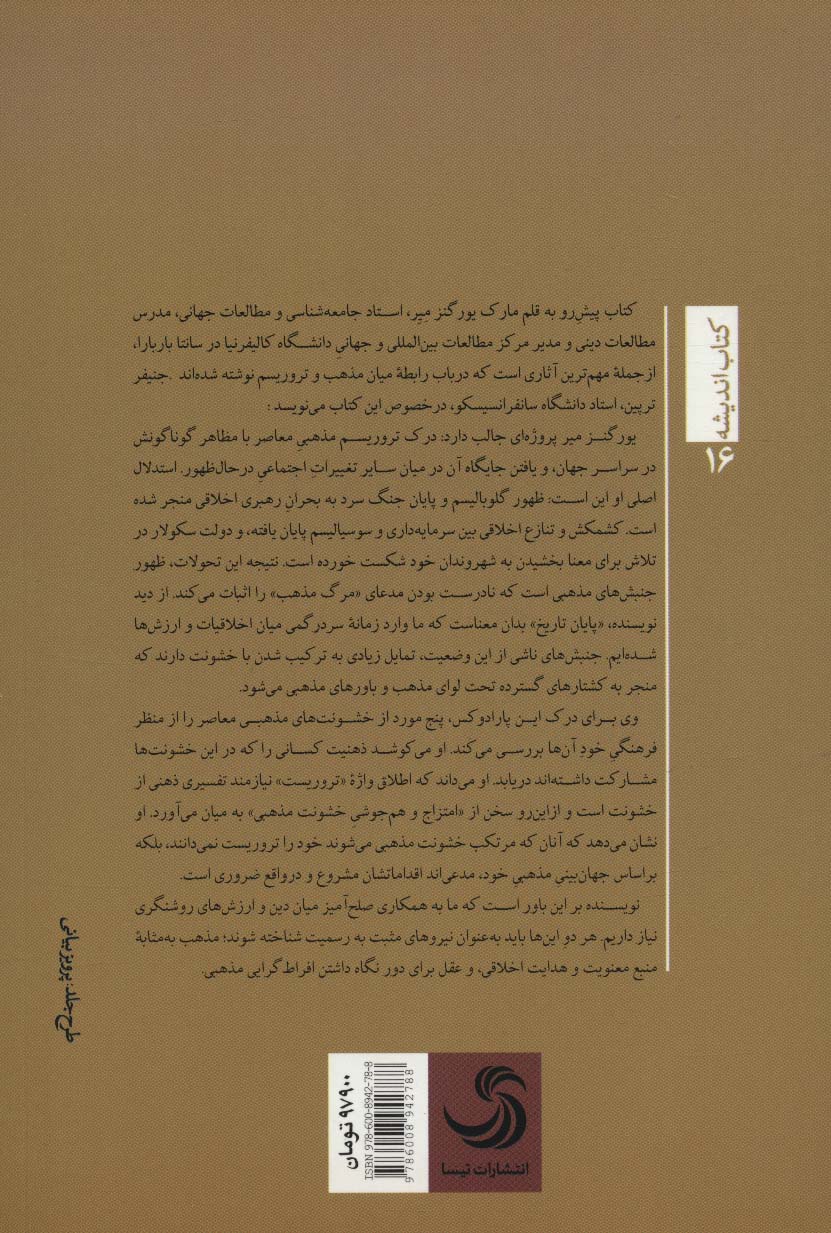 کتاب اندیشه
۱۶
کتاب پیش‌رو به قلم مارک یورگنز مِیِر، استاد جامعه‌شناسی و مطالعات جهانی، مدرس
مطالعات دینی و مدیر مرکز مطالعات بین‌المللی و جهانیِ دانشگاه کالیفرنیا در سانتا باربارا،
ازجملهٔ مهم‌ترین آثاری است که درباب رابطهٔ میان مذهب و تروریسم نوشته شده‌اند .جنیفر
ترپین، استاد دانشگاه سانفرانسیسکو، درخصوص این کتاب می‌نویسد :
یورگنز میر پروژه‌ای جالب دارد: درک تروریسم مذهبیِ معاصر با مظاهر گوناگونش
در سراسر جهان، و یافتن جایگاه آن در میان سایر تغییراتِ اجتماعیِ درحال‌ظهور. استدلال
اصلی او این است: ظهور گلوبالیسم و پایان جنگ سرد به بحرانِ رهبری اخلاقی منجر شده
است. کشمکش و تنازع اخلاقی بین سرمایه‌داری و سوسیالیسم پایان یافته، و دولت سکولار در
تلاش برای معنا بخشیدن به شهروندان خود شکست خورده است. نتیجه این تحولات، ظهور
جنبش‌های مذهبی است که نادرست بودن مدعای «مرگ مذهب» را اثبات می‌کند. از دید
نویسنده، «پایان تاریخ» بدان معناست که ما وارد زمانهٔ سردرگمی میان اخلاقیات و ارزش‌ها
شده‌ایم. جنبش‌های ناشی از این وضعیت، تمایل زیادی به ترکیب شدن با خشونت دارند که
منجر به کشتارهای گسترده تحت لوای مذهب و باورهای مذهبی می‌شود.
وی برای درک این پارادوکس، پنج مورد از خشونت‌های مذهبی معاصر را از منظر
فرهنگیِ خودِ آن‌ها بررسی می‌کند. او می‌کوشد ذهنیت کسانی را که در این خشونت‌ها
مشارکت داشته‌اند دریابد. او می‌داند که اطلاق واژهٔ «تروریست» نیازمند تفسیری ذهنی از
خشونت است و ازاین‌رو سخن از «امتزاج و هم‌جوشیِ خشونت مذهبی» به میان می‌آورد. او
نشان می‌دهد که آنان که مرتکب خشونت مذهبی می‌شوند خود را تروریست نمی‌دانند، بلکه
براساس جهان‌بینیِ مذهبیِ خود، مدعی‌اند اقداماتشان مشروع و درواقع ضروری است.
نویسنده بر این باور است که ما به همکاری صلح‌آمیز میان دین و ارزش‌های روشنگری
نیاز داریم. هر دوِ این‌ها باید به‌عنوان نیروهای مثبت به رسمیت شناخته شوند؛ مذهب به‌مثابهٔ
منبع معنویت و هدایت اخلاقی، و عقل برای دور نگاه داشتن افراط‌گرایی مذهبی.
طرح جلد: پرویز بیانی
۹۷۹۰۰ تومان
ISBN 978-600-8942-78-8
9786008942788
انتشارات تیسا